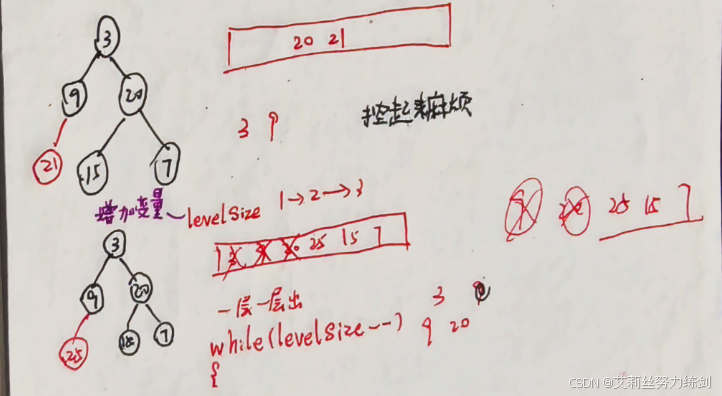 3
20 21
9 20
3 9
控起来麻烦
21 15 7
增加变量 levelSize 1→2→3
25 15 7
3
25 15 7
9 20
一层一层出
3
25 15 7
while(levelSize--) 9 20
{
CSDN @艾莉丝努力练剑